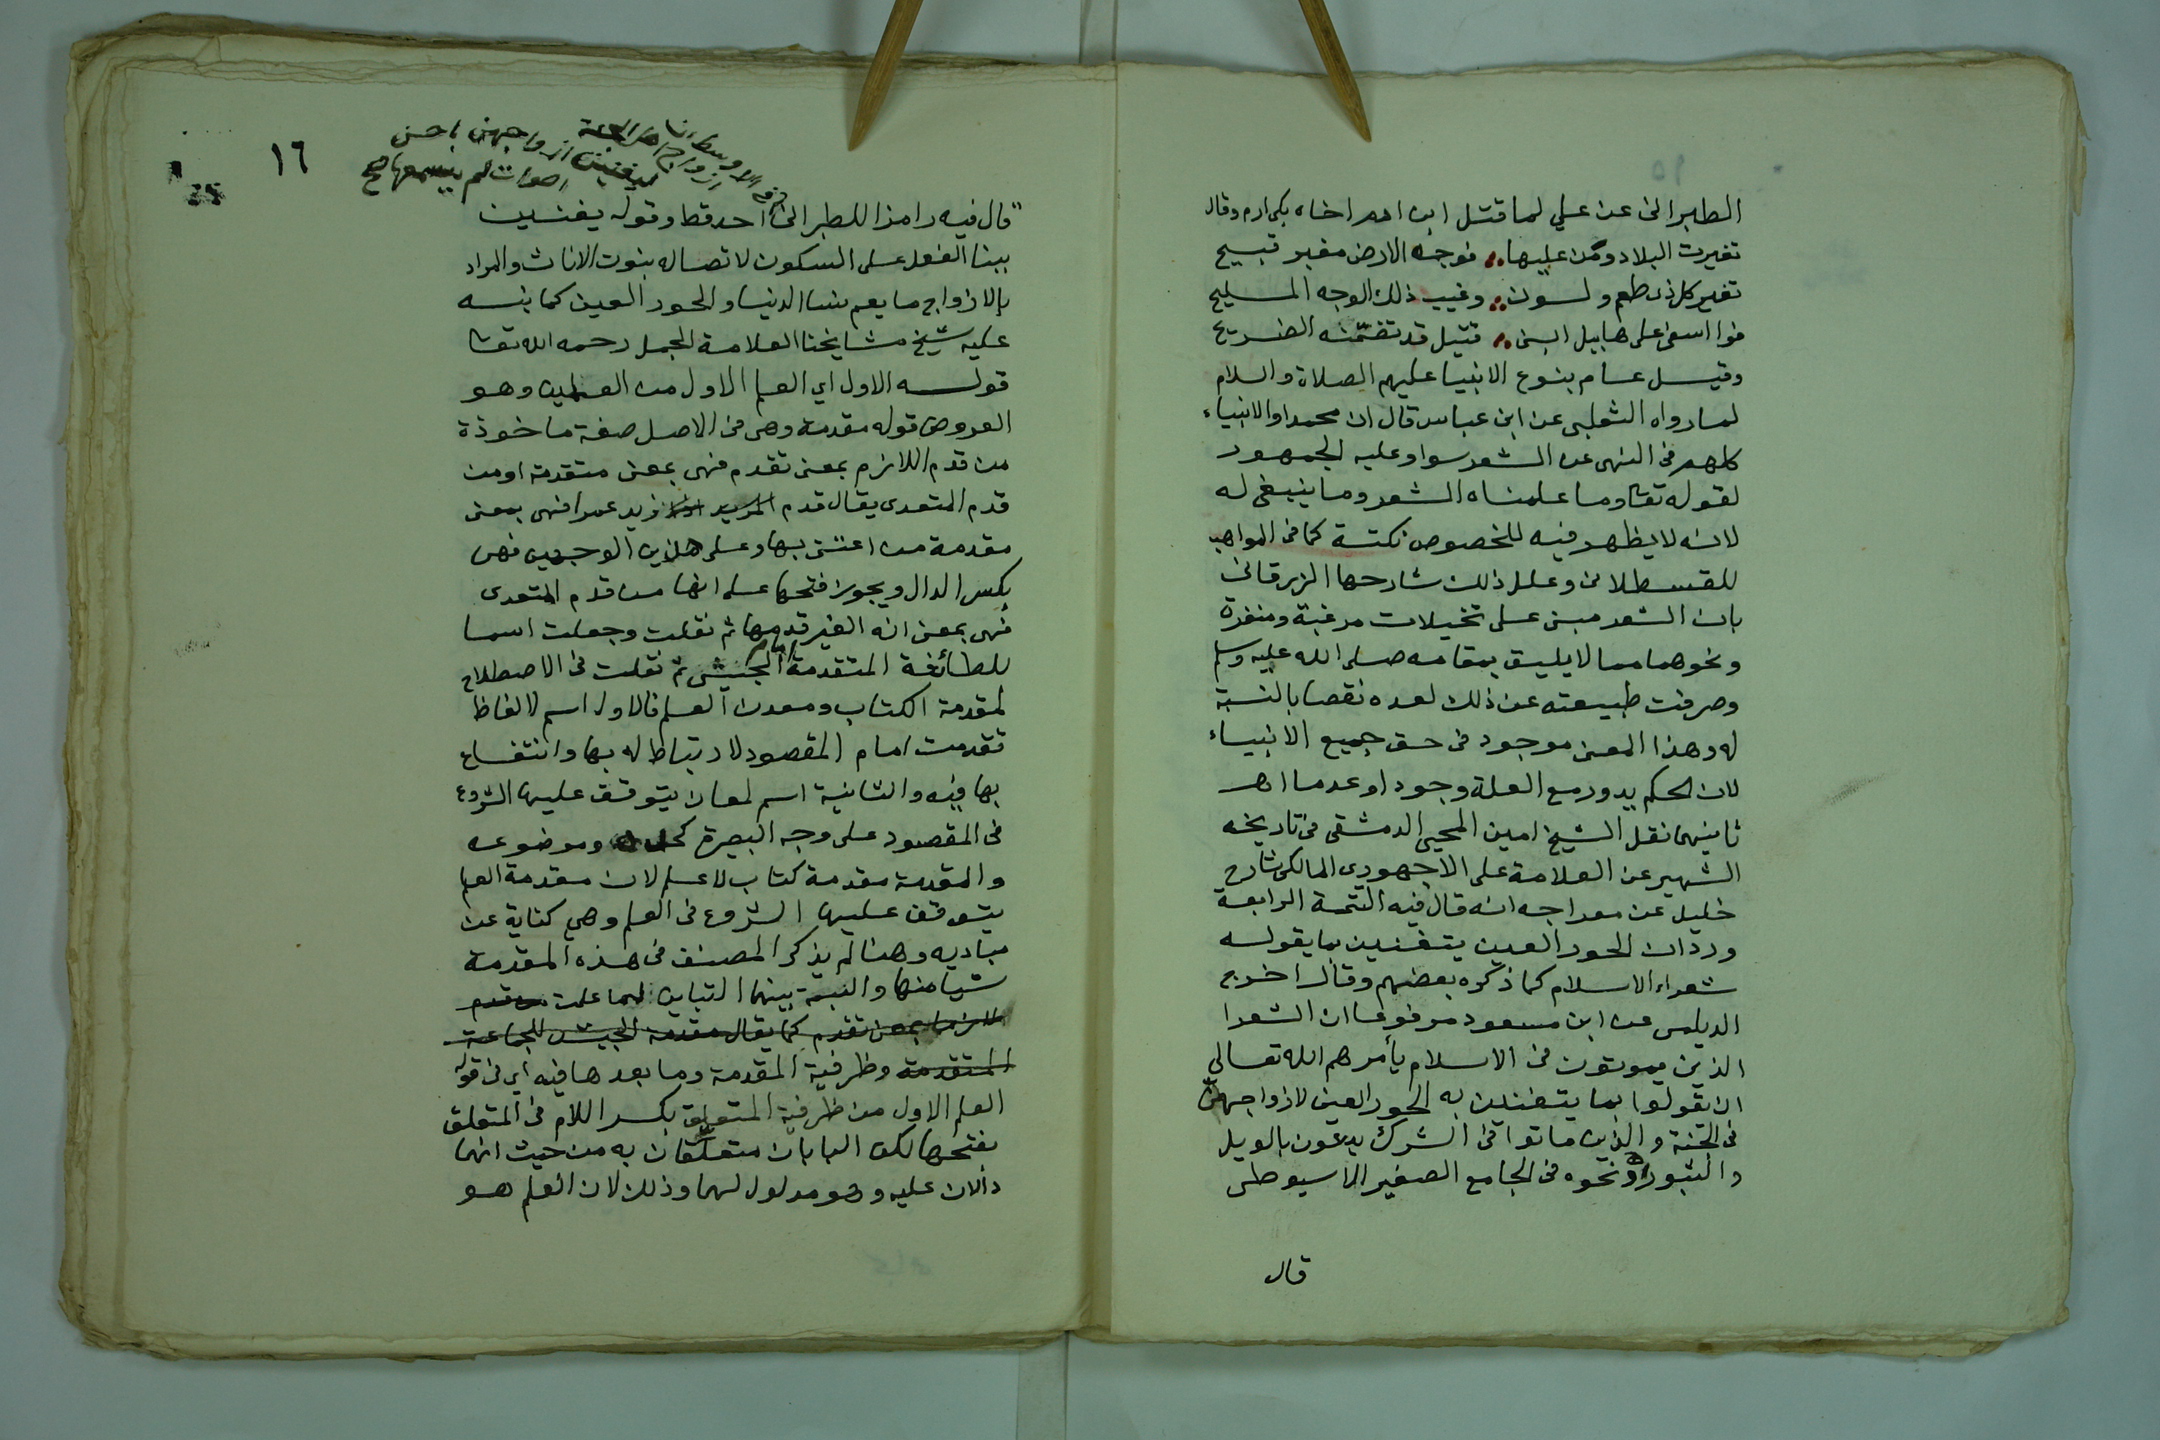 الطبرانى عن على لما قتل ابن ادم اخاه بكى ادم وقال
تغيرت البلاد ومن عليها فوجه الارض مغبر قبيح
تغير كل ذى طعم ولون وغيب ذلك الوجه المليح
فوا اسفى على هابيل ابنى قتيل قد تضمنه الضريح
وقيل عام بنوع الانبيا عليهم الصلاة والسلام
لما رواه الثعلبى عن ابن عباس قال ان محمدا والانبياء
كلهم فى النهى عن الشعر سوا وعليه الجمهور
لقوله تعا وما علمناه الشعر وما ينبغى له
لانه لا يظهر فيه للخصوص نكتة كما فى المواهب
للقسطلانى وعلل ذلك شارحها الزرقانى
بان الشعر مبنى على تخيلات مرغبة ومنفرة
ونحوهما مما لا يليق بمقامه صلى الله عليه وسلم
وصرفت طبيعته عن ذلك لعده نقصا بالنسبة
له وهذا المعنى موجود فى حق جميع الانبياء
لان الحكم يدور مع العلة وجودا وعدما اهـ
ثانيهما نقل الشيخ امين المحبى الدمشقى فى تاريخه
الشهير عن العلامة على الاجهورى المالكى شارح
خليل عن معراجه انه قال فيه التتمة الرابعة
ورد ان الحور العين يتغنين بما يقوله
شعراء الاسلام كما ذكره بعضهم وقال اخرج
الديلمى عن ابن مسعود مرفوعا ان الشعرا
الذين يموتون فى الاسلام يأمرهم الله تعالى
ان يقولوا بما يتغنين به الحور العين لازواجهن
فى الجنة والذين ماتوا فى الشرك يدعون بالويل
والثبور اهـ ونحوه فى الجامع الصغير للاسيوطى
قال
١٦
فى الاوسط ان
ازواج اهل الجنة
ليغنين ازواجهن باحسن
اصوات لم يسمعها صح
قال فيه رامزا للطبرانى احد قط وقوله يغنين
ببنا الفعل على السكون لاتصاله بنون الاناث والمراد
بالازواج ما يعم نسا الدنيا والحور العين كما نبه
عليه شيخ مشايخنا العلامة الجمل رحمه الله تعا
قوله الاول اي العلم الاول من العلمين وهو
العروض قوله مقدمة وهى فى الاصل صفة ماخوذة
من قدم اللازم بمعنى تقدم فهى بمعنى متقدمة او من
قدم المتعدى يقال قدم زيد عمرا فهى بمعنى
مقدمة من اعتنى بها وعلى هذين الوجهين فهى
بكسر الدال ويجوز فتحها على انها من قدم المتعدى
فهى بمعنى انه الغير قدمها ثم نقلت وجعلت اسما
للطائفة المتقدمة امام الجيش ثم نقلت فى الاصطلاح
لمقدمة الكتاب ومقدمة العلم فالاول اسم لالفاظ
تقدمت امام المقصود لارتباط له بها وانتفاع
بها فيه والثانية اسم لمعان يتوقف عليها الشروع
فى المقصود على وجه البصيرة كحده وموضوعه
والمقدمة مقدمة كتاب لا علم لان مقدمة العلم
يتوقف عليها الشروع فى العلم وهي كناية عن
مباديه وهنا لم يذكر المصنف فى هذه المقدمة
شيا منها والنسبة بينهما التباين لما علمت من قدم
اللازما بمعنى تقدم كما يقال مقدمة الجيش للجماعة
المتقدمة وظرفية المقدمة وما بعدها فيه اي فى قوله
العلم الاول من ظرفية المتعلق بكسر اللام فى المتعلق
بفتحها لكن البابان متعلقان به من حيث انهما
دالان عليه وهو مدلول لهما وذلك لان العلم هو